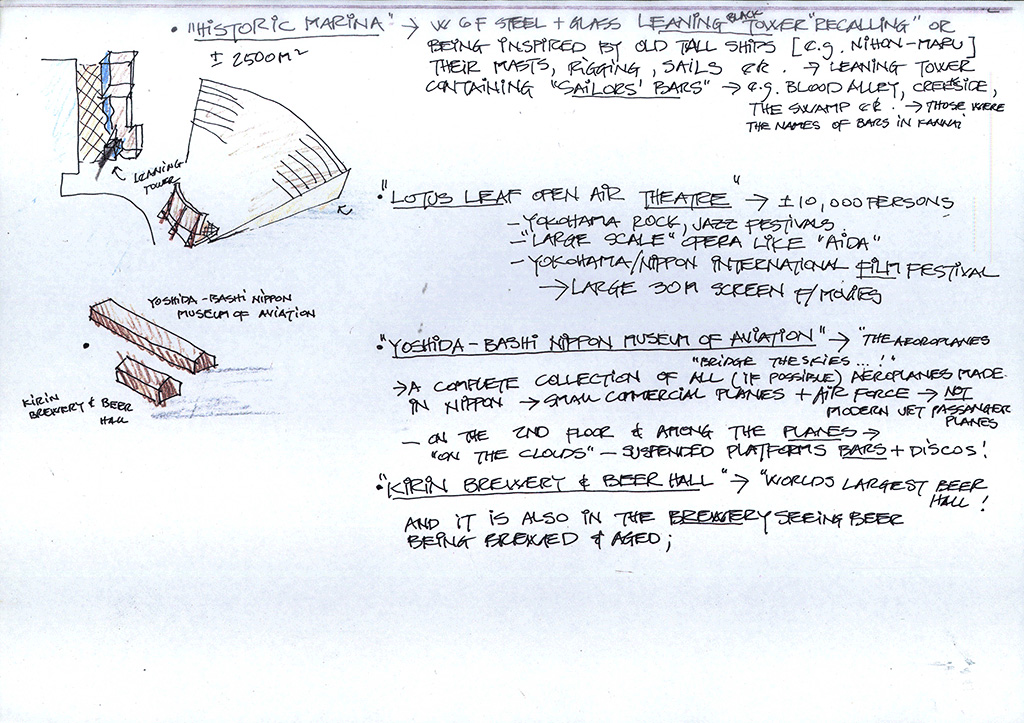 • "HISTORIC MARINA" → W 6F STEEL + GLASS LEANING BLACK TOWER "RECALLING" OR
± 2500 M²
BEING INSPIRED BY OLD TALL SHIPS [e.g. NIHON-MARU]
THEIR MASTS, RIGGING, SAILS etc. → LEANING TOWER
CONTAINING "SAILORS' BARS" → e.g. BLOOD ALLEY, CREESIDE,
THE SWAMP etc. → THOSE WERE
THE NAMES OF BARS IN KANNAI
LEANING
TOWER
• "LOTUS LEAF OPEN AIR THEATRE" → ±10,000 PERSONS
– YOKOHAMA ROCK, JAZZ FESTIVALS
– "LARGE SCALE" OPERA LIKE "AIDA"
– YOKOHAMA/NIPPON INTERNATIONAL FILM FESTIVAL
→ LARGE 30M SCREEN F/MOVIES
YOSHIDA-BASHI NIPPON
MUSEUM OF AVIATION
KIRIN
BREWERY & BEER
HALL
• "YOSHIDA-BASHI NIPPON MUSEUM OF AVIATION" → "THE AEROPLANES
"BRIDGE THE SKIES ..."
→ A COMPLETE COLLECTION OF ALL (IF POSSIBLE) AEROPLANES MADE
IN NIPPON → SMALL COMMERCIAL PLANES + AIR FORCE → NOT
MODERN JET PASSANGER
PLANES
– ON THE 2ND FLOOR & AMONG THE PLANES →
"ON THE CLOUDS" – SUSPENDED PLATFORMS BARS + DISCOS!
• "KIRIN BREWERY & BEER HALL" → "WORLDS LARGEST BEER
HALL!
AND IT IS ALSO IN THE BREWERY SEEING BEER
BEING BREWED & AGED;